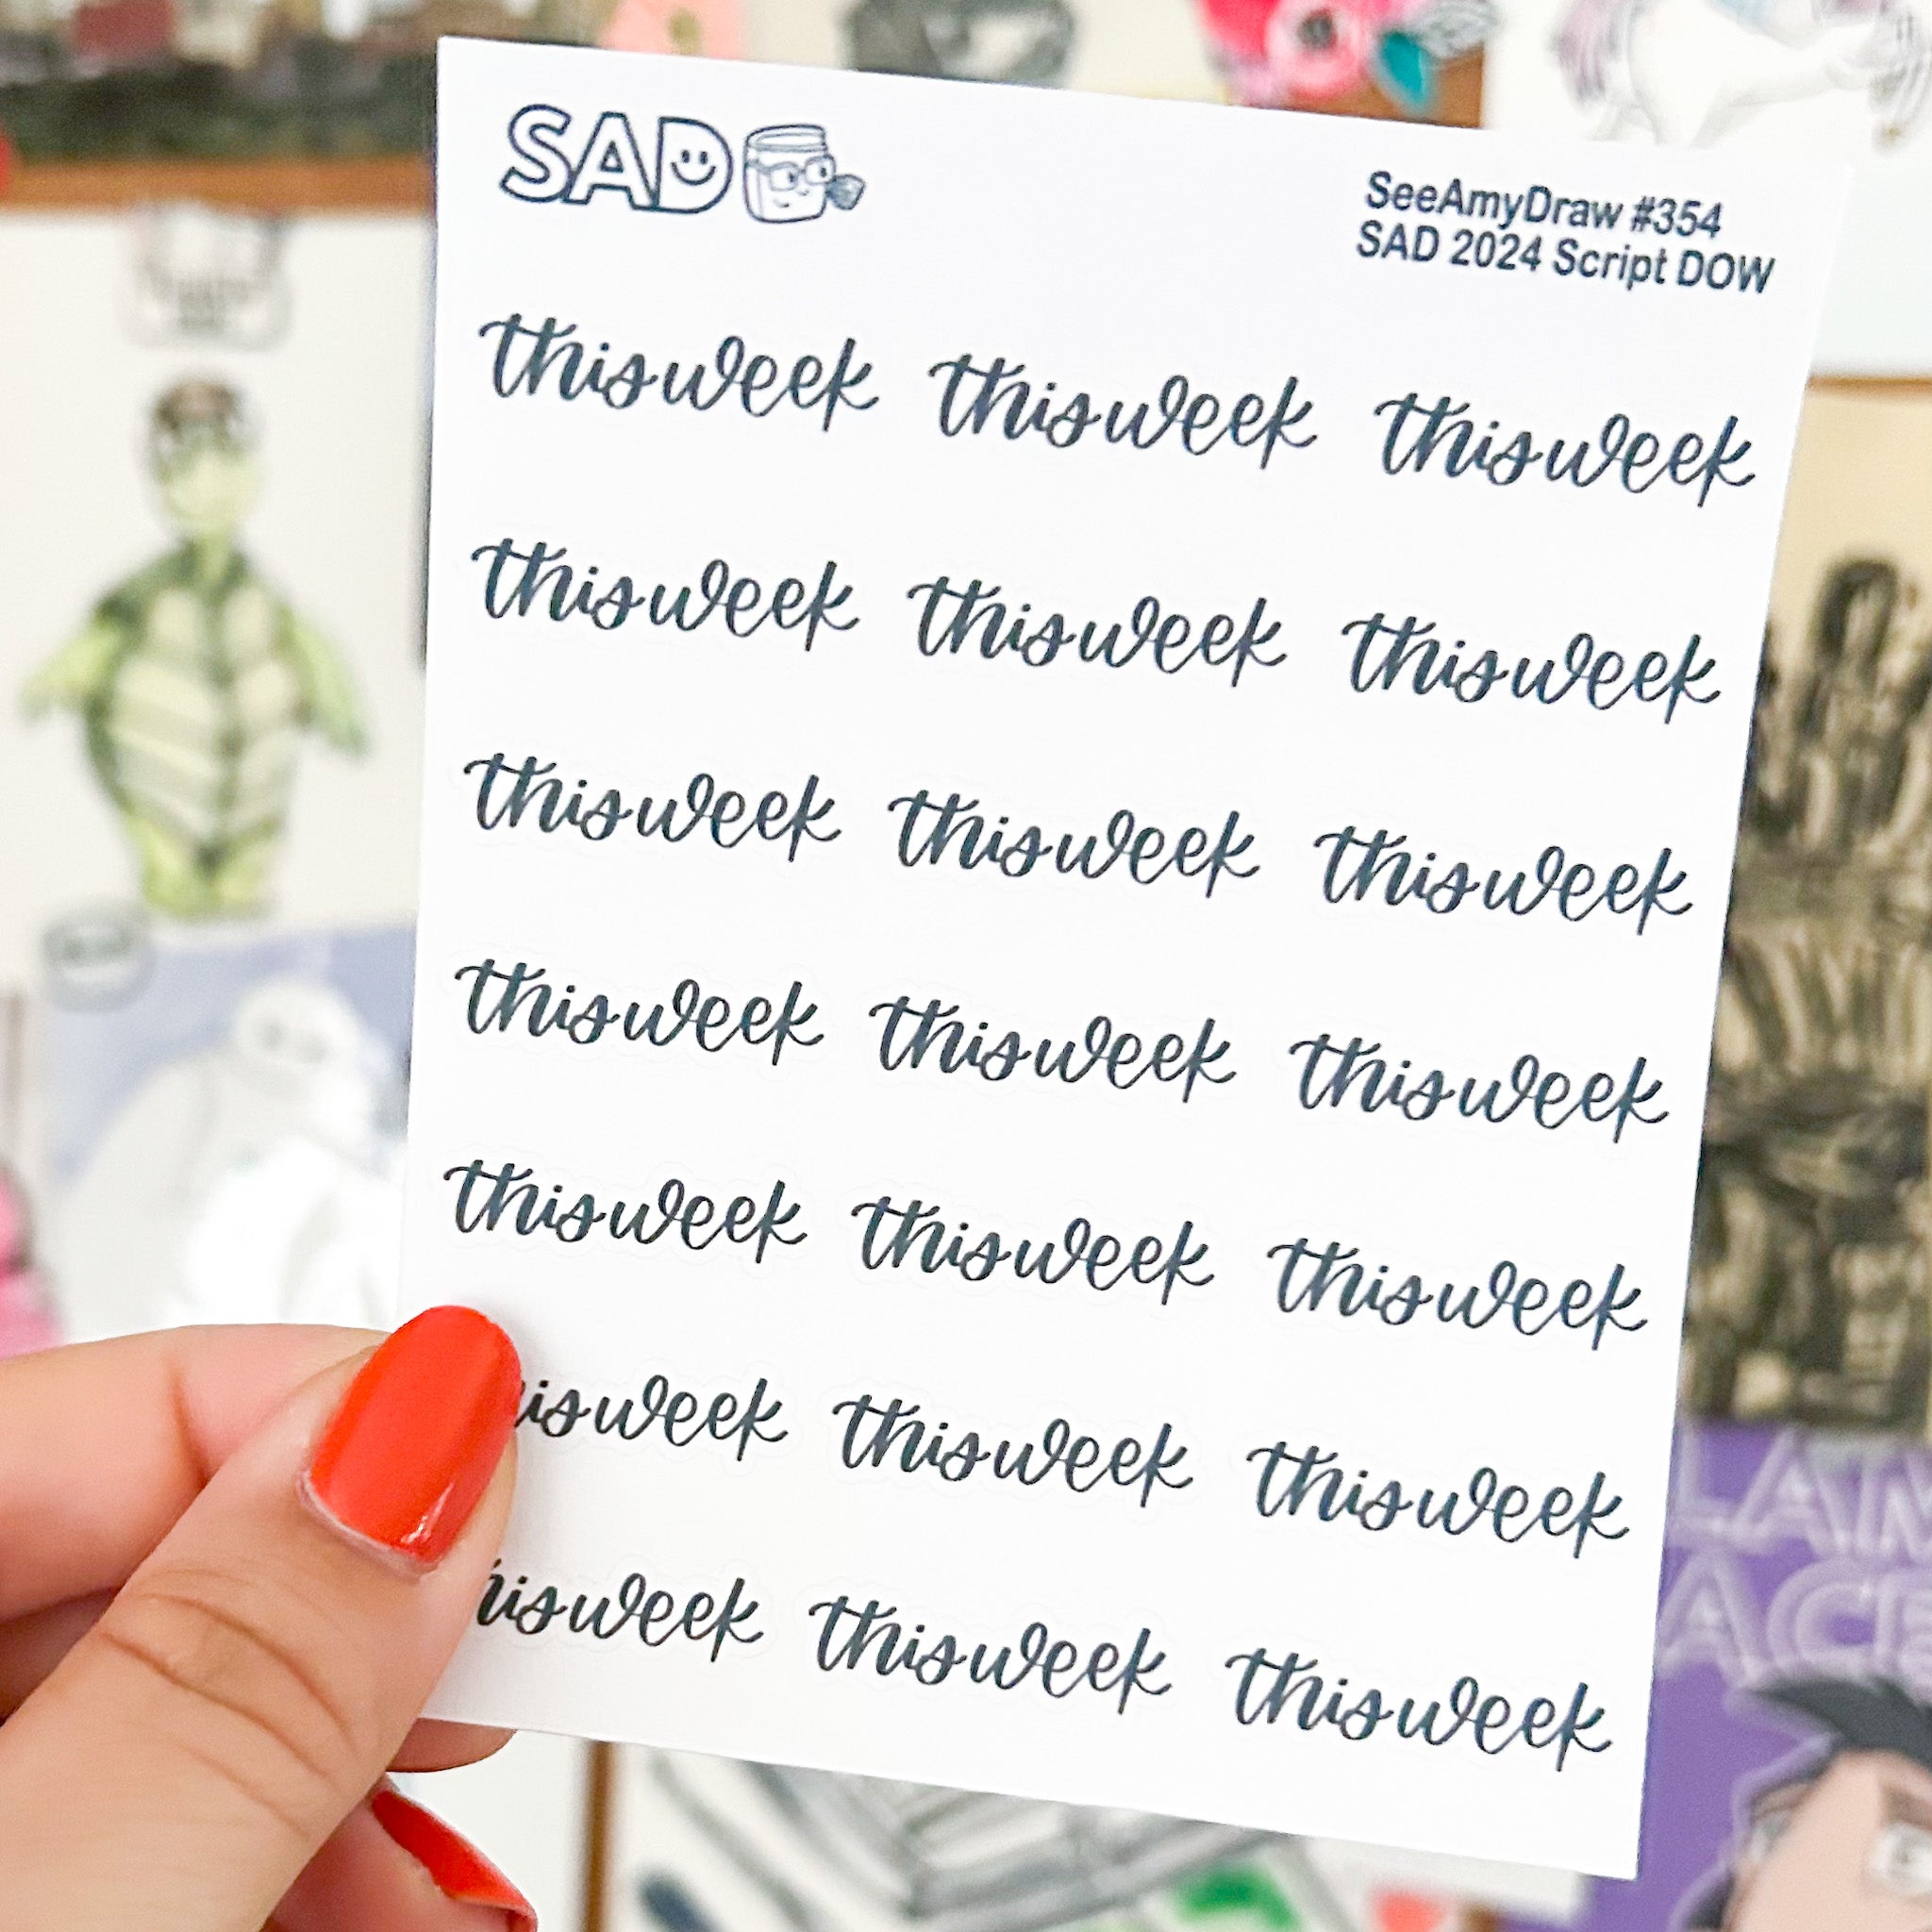 SAD
SeeAmyDraw #354
SAD 2024 Script DOW
this week this week this week
this week this week this week
this week this week this week
this week this week this week
this week this week this week
is week this week this week
his week this week this week